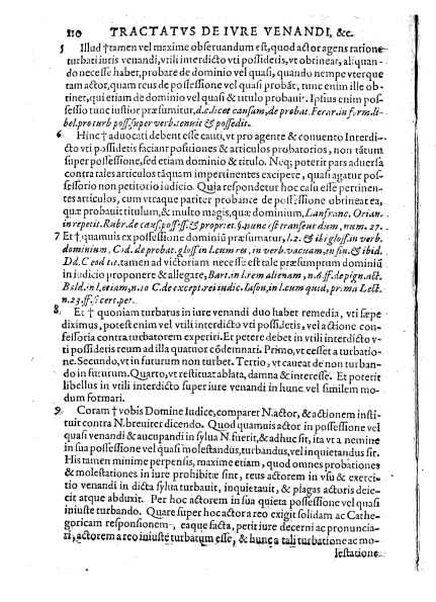 110 TRACTATVS DE IVRE VENANDI, &c.
5 Illud †tamen vel maxime obseruandum est, quod actor agens ratione
turbati iuris venandi, vtili interdicto vti possidetis, vt obtineat, aliquan-
do necesse habet, probare de dominio vel quasi, quando nempe vterque
tam actor, quam reus de possessione vel quasi probāt, tunc enim ille ob-
tinet, qui etiam de dominio vel quasi & titulo probauit. Ipsius enim pos-
sessio tunc iustior præsumitur,
6 Hinc † aduocati debent esse cauti, vt pro agente & conuento Interdi-
cto vti possidetis faciant positiones & articulos probatorios, non tātum
super possessione, sed etiam dominio & titulo. Neq; poterit pars aduersa
contra tales articulos tāquam impertinentes excipere, quasi agatur pos-
sessorio non petitorio iudicio. Quia respondetur hoc casu esse pertinen-
tes articulos, cum vtraque pariter probante de possessione obtineat ea,
quæ probauit titulum, & multo magis, quæ dominium. Lanfranc. Orian.
in repetit. Rubr. de caus. poss. & propriet. §. nunc est transeundum, num. 27.
7 Et †quamuis ex possessione dominiū præsumatur, l. 2. & ibi gloss. in verb.
dominium, C. de probat. gloss. in l. cum res, in verb. vacuam, in fin. & ibid.
Dd. C. eod tit. tamen ad victoriam necesse est tale præsumptum dominiū
in iudicio proponere & allegare, Bart. in l. rem alienam, n. 6. ff. de pign. act.
Bald. in l. etiam, n. 10 C. de except. rei iudic. Iason, in l. cum quid, prima Lect.
n. 23. ff. si cert. pet.
8 Et † quoniam turbatus in iure venandi duo habet remedia, vti sæpe
diximus, potest enim vel vtili interdicto vti possidetis, vel actione con-
fessoria contra turbatorem experiri. Et petere debet in vtili interdicto v-
ti possidetis reum ad illa quatuor cōdemnari. Primo, vt cesset a turbatio-
ne. Secundo, vt in futurum non turbet. Tertio, vt caueat de non turban-
do in futurum. Quarto, vt restituat ablata, damna & interesse. Et poterit
libellus in vtili interdicto super iure venandi in hunc vel similem mo-
dum formari.
9 Coram † vobis Domine Iudice, comparet N. actor, & actionem insti-
tuit contra N. breuiter dicendo. Quod quamuis actor in possessione vel
quasi venandi & aucupandi in sylua N. fuerit, & adhuc sit, ita vt a nemine
in sua possessione vel quasi molestandus, turbandus, vel inquietandus sit.
His tamen minime perpensis, maxime etiam, quod omnes probationes
& molestationes in iure prohibitæ sint, reus actorem in vsu & exerci-
tio venandi in dicta sylua turbauit, inquietauit, & plagas actoris deie-
cit atque abduxit. Per hoc actorem in sua quieta possessione vel quasi
iniuste turbando. Quare super hoc actor a reo exigit solidam ac Cathe-
goricam responsionem, eaque facta, petit iure decerni ac pronuncia-
ri, actorem a reo iniuste turbatum esse, & hunc a tali turbatione ac mo-
lestatione